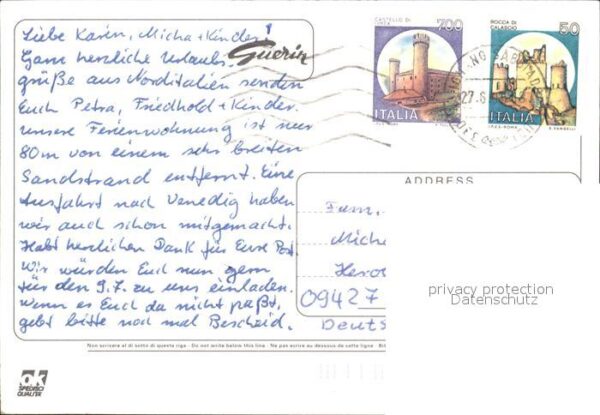 Liebe Karin, Micha + Kinder!
Ganz herzliche Urlaubs-
grüße aus Norditalien senden
Euch Petra, Friedhold + Kinder.
Unsere Ferienwohnung ist nur
80m von einem sehr breiten
Sandstrand entfernt. Eine
Ausfahrt nach Venedig haben
wir auch schon mitgemacht.
Habt herzlichen Dank für Eure Post
Wir würden Euch nun gern
für den 9.7. zu uns einladen.
Wenn es Euch da nicht paßt,
gebt bitte noch mal Bescheid.
Guerin
CASTELLO DI
IVREA
700
ITALIA
I.P.Z.S. ROMA
ROCCA DI
CALASCIO
50
ITALIA
I.P.Z.S. ROMA
E. VANGELLI
27.6
ADDRESS
Fam.
Miche
09427
Deuts
privacy protection
Datenschutz
Non scrivere al di sotto di questa riga - Do not write below this line - Ne pas ecrire au dessous de cette ligne - Bi
ok
SPEDISCI
QUALITÀ